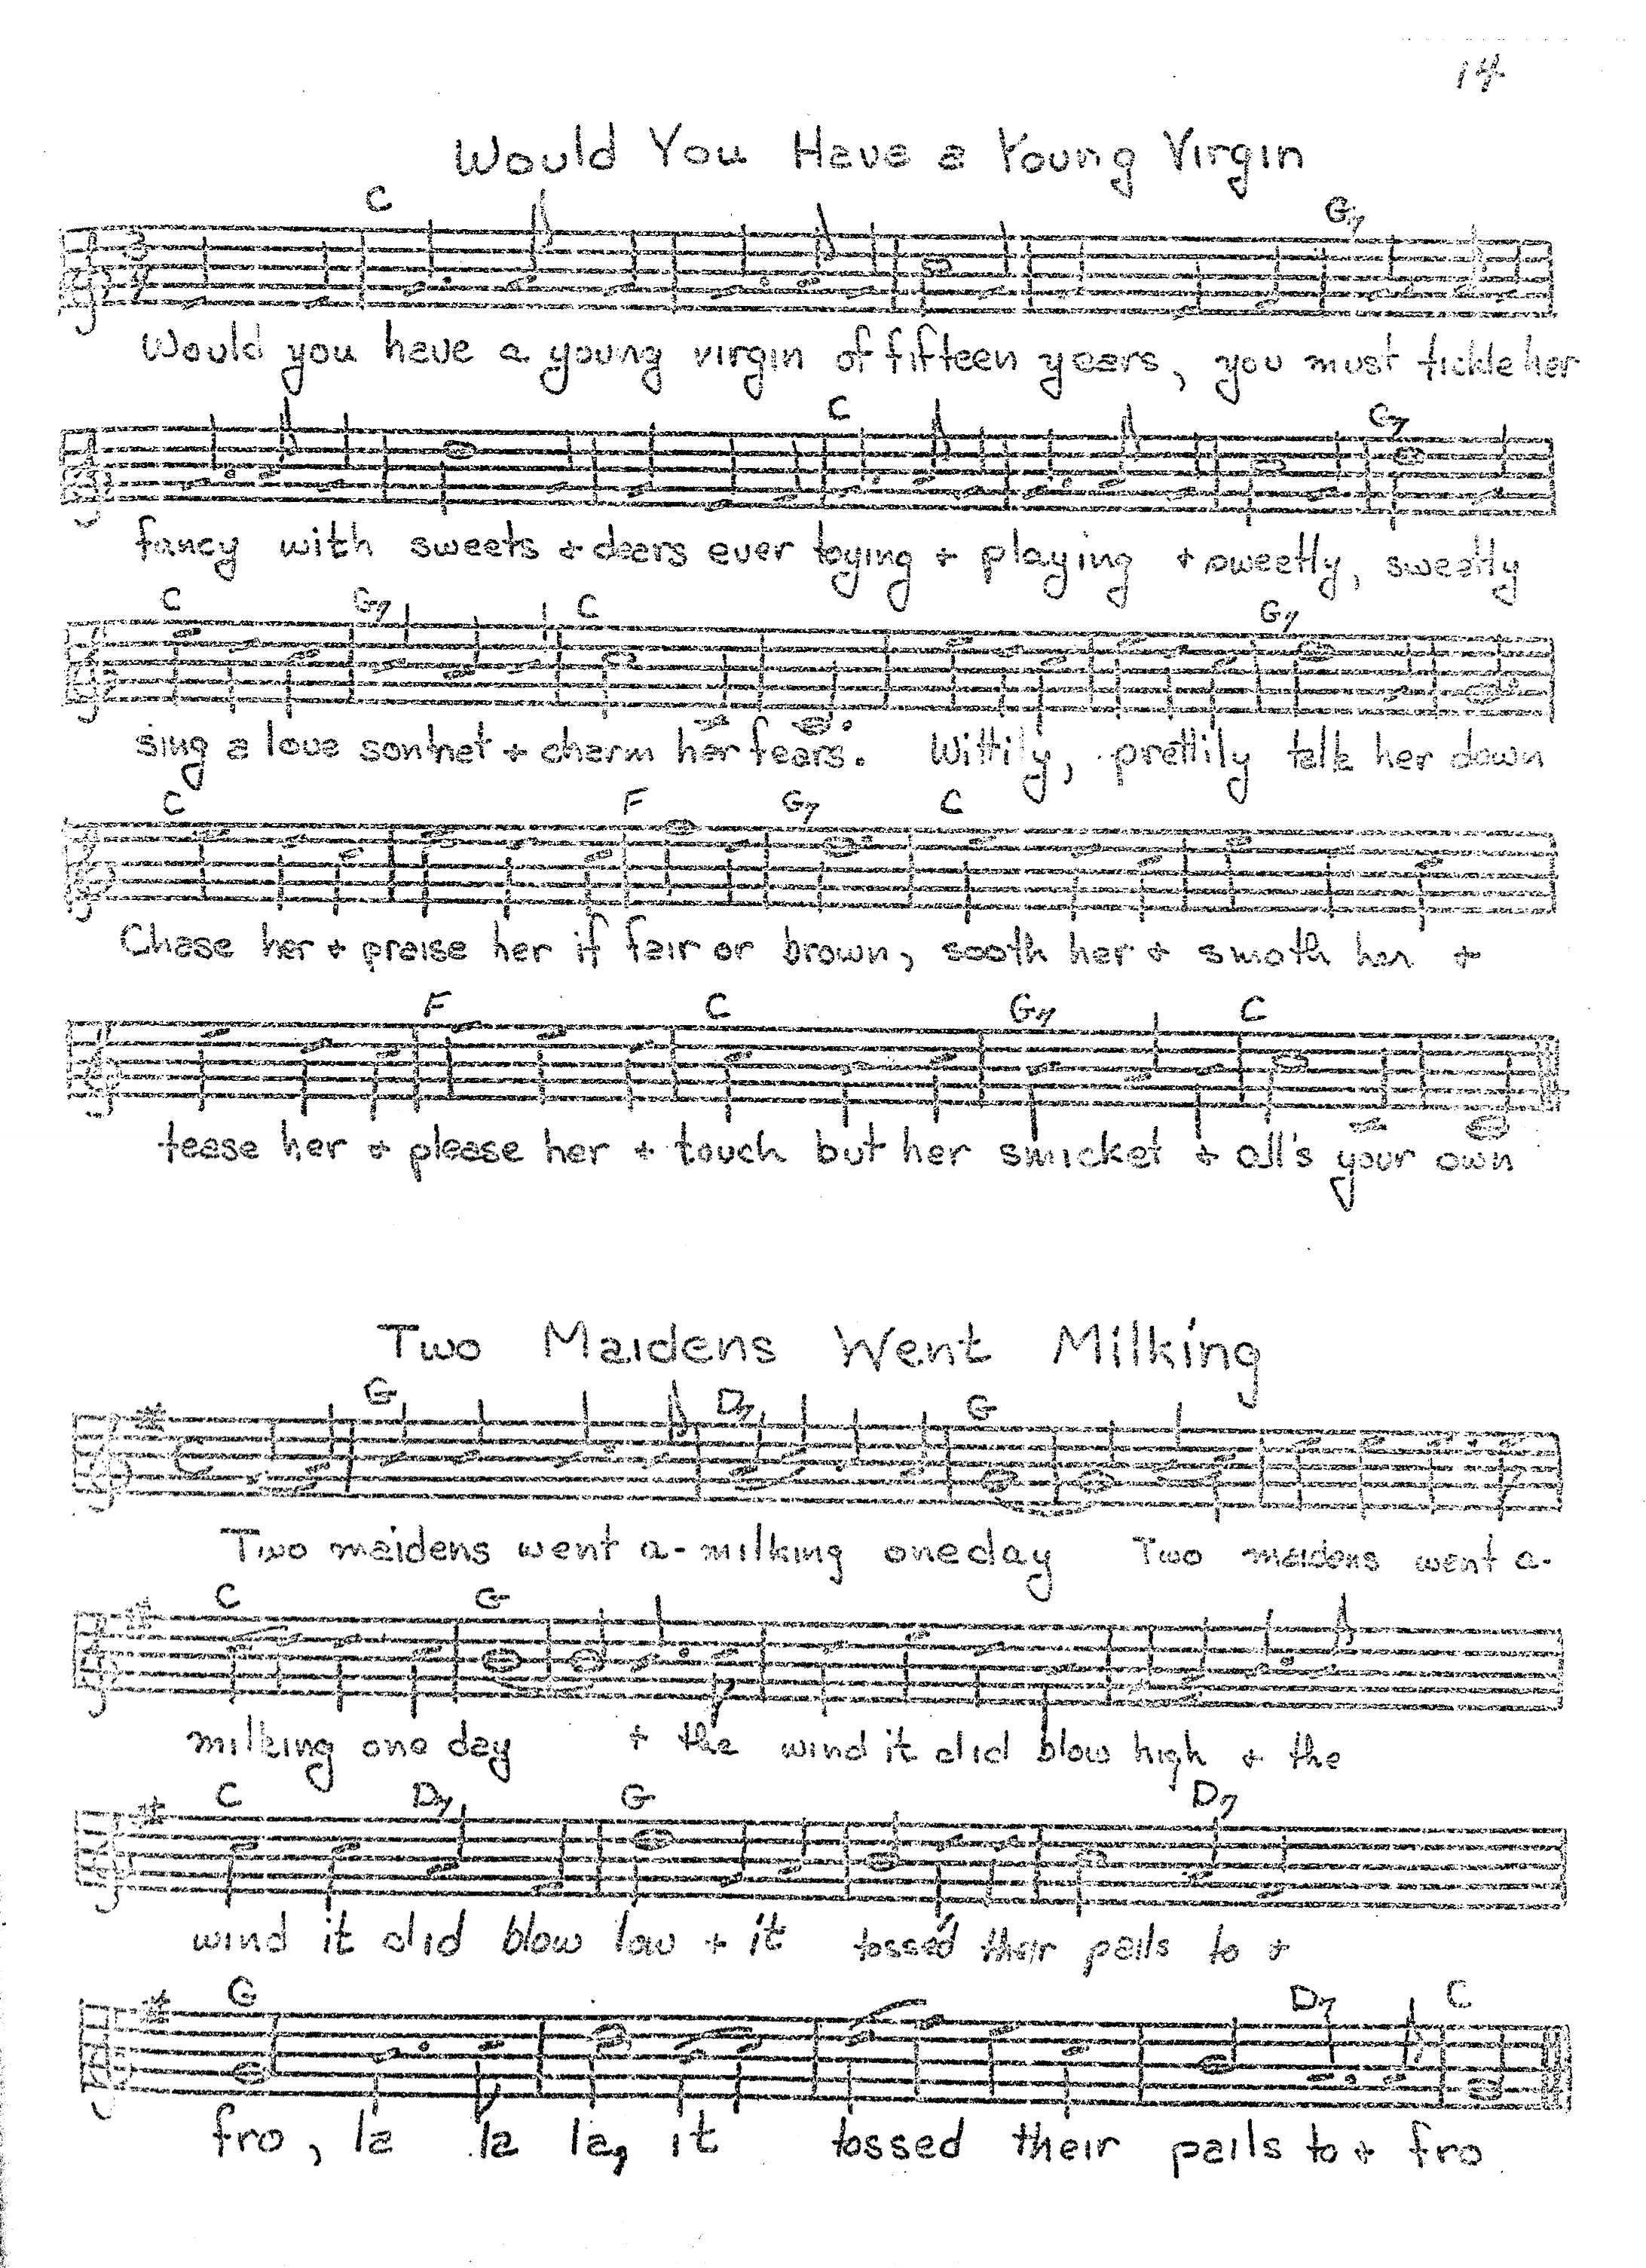 14
Would You Have a Young Virgin
C G7
Would you have a young virgin of fifteen years, you must tickle her
C G7
fancy with sweets + dears ever toying + playing + sweetly, sweetly
C G7 C G7
sing a love sonnet + charm her fears. Wittily, prettily talk her down
C F G7 C
Chase her + praise her if fair or brown, sooth her + smoth her +
F C G7 C
tease her + please her + touch but her smicket + all's your own
Two Maidens Went Milking
G D7 G
Two maidens went a-milking one day Two maidens went a-
C G
milking one day + the wind it did blow high + the
C D7 G D7
wind it did blow low + it tossed their pails to +
G D7 C
fro, la la la, it tossed their pails to + fro